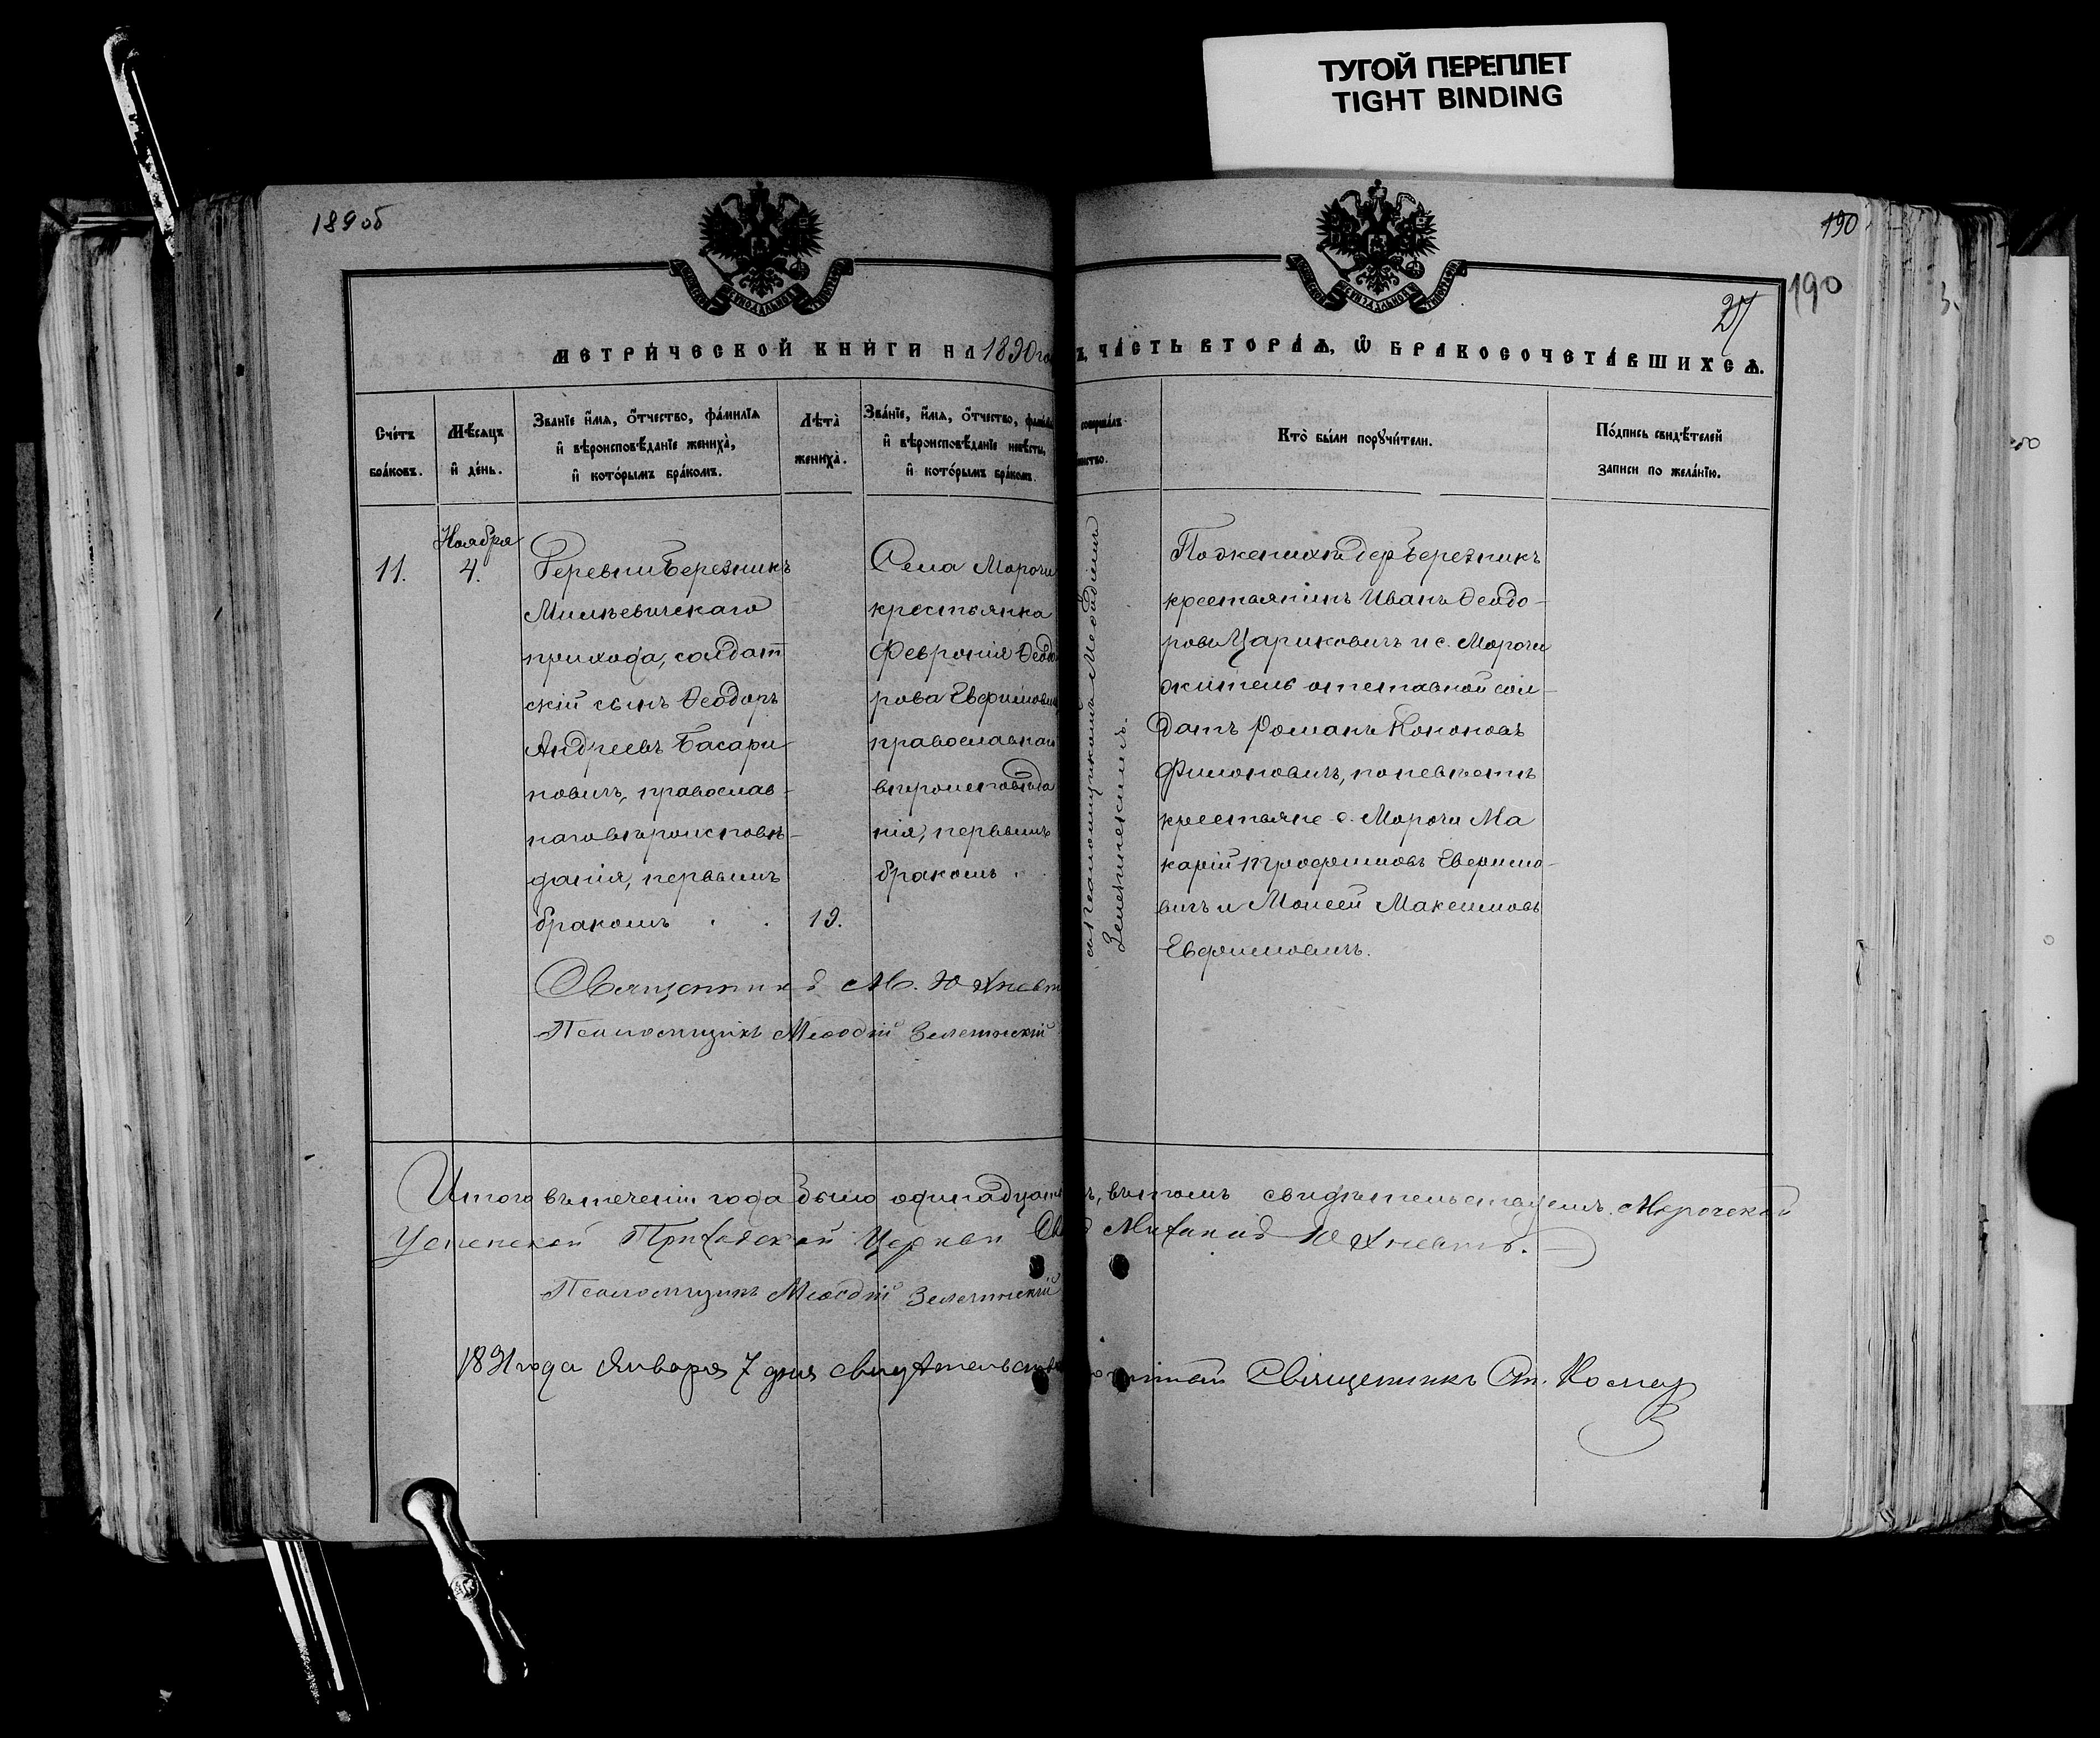 ТУГОЙ ПЕРЕПЛЕТ
TIGHT BINDING
189 об
190
190
МЕТРИ́ЧЕСКОЙ КНИ́ГИ НА 1890 го
ЧА́СТЬ ВТОРА́Я, Ѡ БРАКОСОЧЕТА́ВШИХСЯ.
Сче́тъ бра́ковъ.
Мѣ́сяцъ и҆ де́нь.
Зва́нїе и҆́мя, ѻ҆́тчество, фамі́лїя
и҆ вѣроисповѣ́данїе жениха̀,
и҆ кото́рымъ бра́комъ.
Лѣ́та̀ жениха̀.
Зва́нїе, и҆́мя, ѻ҆́тчество,
и҆ вѣроисповѣ́данїе невѣ́сты,
и҆ кото́рымъ бра́комъ.
Кто̀ бы́ли порꙋчи́тели.
По́дпись свидѣ́телей
записи по жела́нїю.
11.
Ноября
4.
Деревни Березникъ
прихода, солдат
скій сынъ Ѳеодоръ
Андреевъ Басари
новичъ, православ-
наго вѣроисповѣ-
данія, первымъ
бракомъ
19.
Села Морочи
крестьянка
Февронія Ѳеодо
рова Евфимови
православнаго
вѣроисповѣда
нія, первымъ
бракомъ
Псаломщикомъ Меѳодіемъ
По женихѣ дер. Березникъ
крестьянинъ Иванъ Ѳеодо-
ровъ Цариковичъ и с. Морочи
житель отставной сол-
датъ Романъ Кононовъ
Филоновичъ, по невѣстѣ
крестьяне с. Морочи Ма
карій Трофимовъ Евфимо-
вичъ и Моисей Максимовъ
Евфимовичъ.
Священникъ М. Юхневи
Псаломщикъ Меѳодій
Итого въ теченіи года было одинадцать, въ томъ свидѣтельствуемъ. Морочской
Успенской Приходской Церкви Михаилъ Юхневичъ.
Псаломщикъ Меѳодій
1891 года Января 7 дня свидѣтельств Священникъ